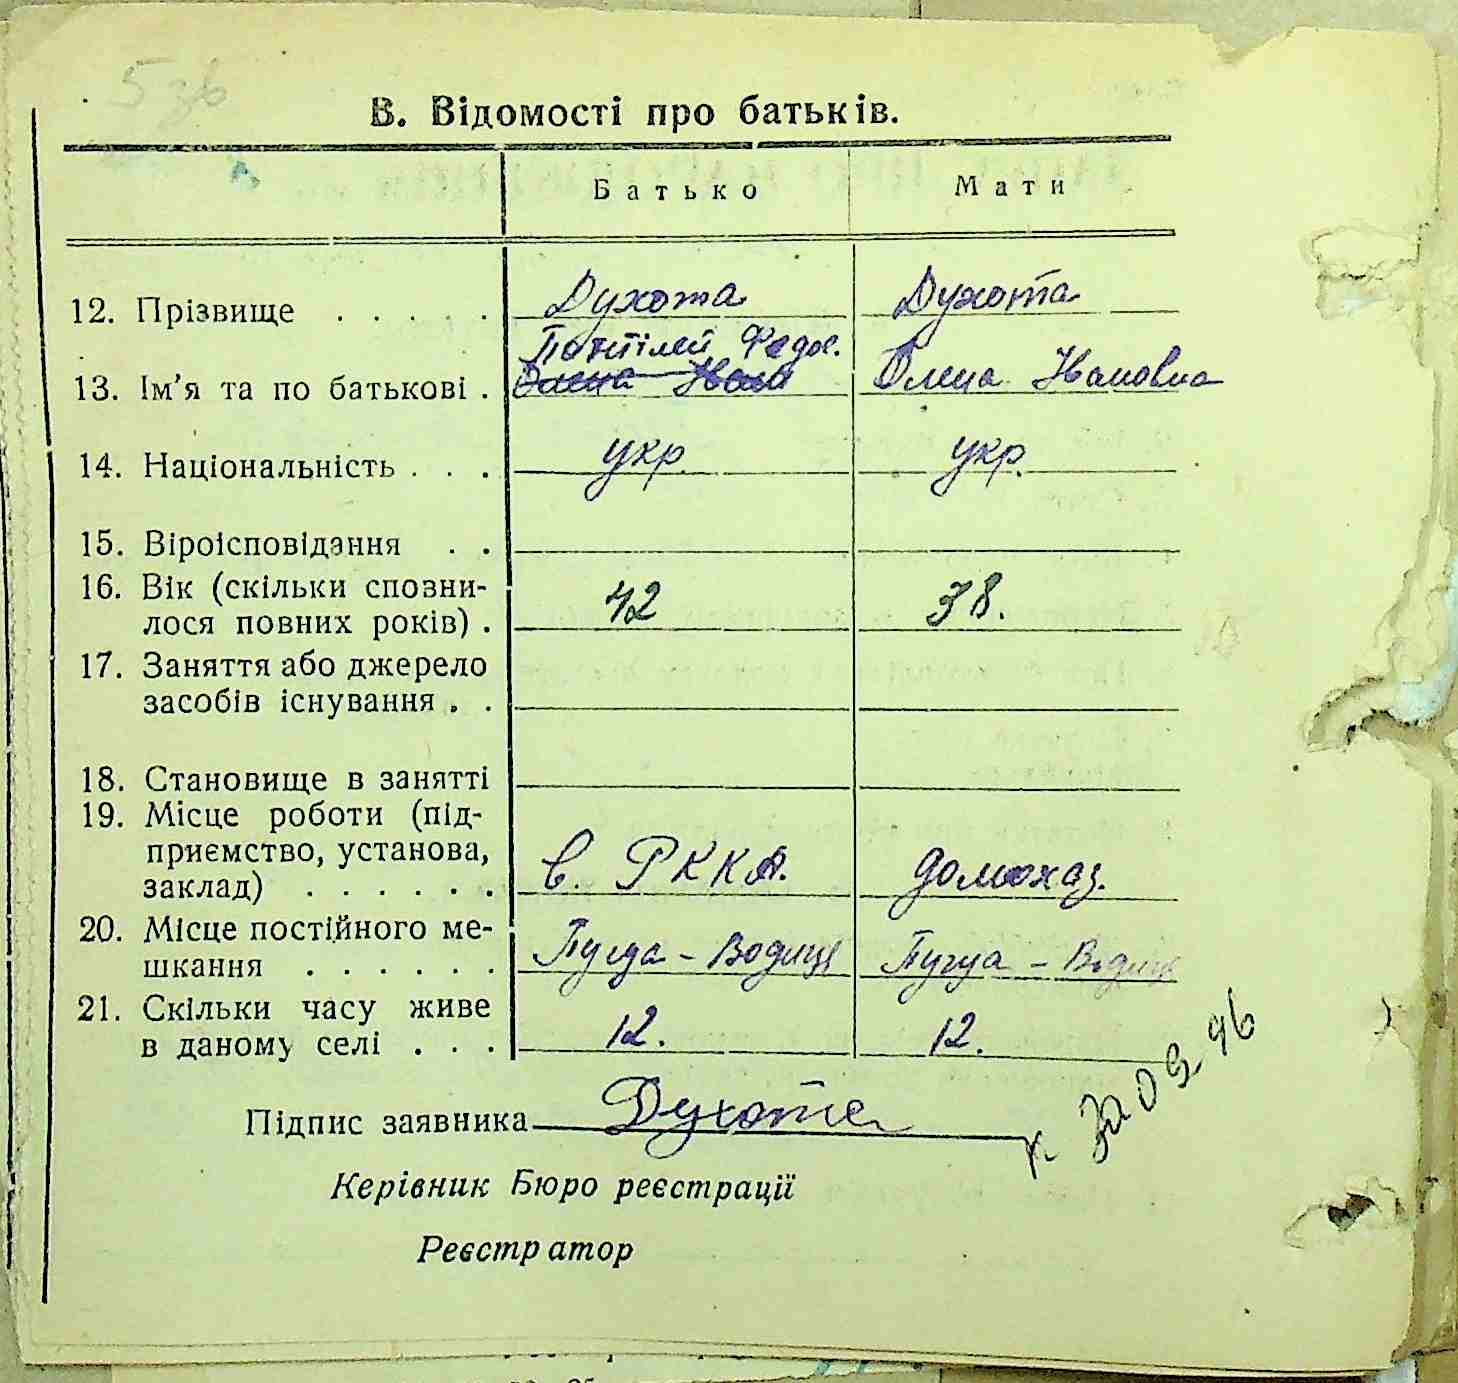 5 зв
В. Відомості про батьків.
Батько Мати
12. Прізвище . . . . . Духота Духота
Пантілей Федос.
13. Ім'я та по батькові . Олена Іван Олена Івановна
14. Національність . . . укр. укр.
15. Віроісповідання . .
16. Вік (скільки спозни-
лося повних років) . 42 38.
17. Заняття або джерело
засобів існування . .
18. Становище в занятті
19. Місце роботи (під-
приємство, установа,
заклад) . . . . . . в. РККА. домохаз.
20. Місце постійного ме-
шкання . . . . . . Пуща-Водиця Пуща-Водиця
21. Скільки часу живе
в даному селі . . . 12. 12.
Підпис заявника Духота
Керівник Бюро реєстрації
Реєстратор